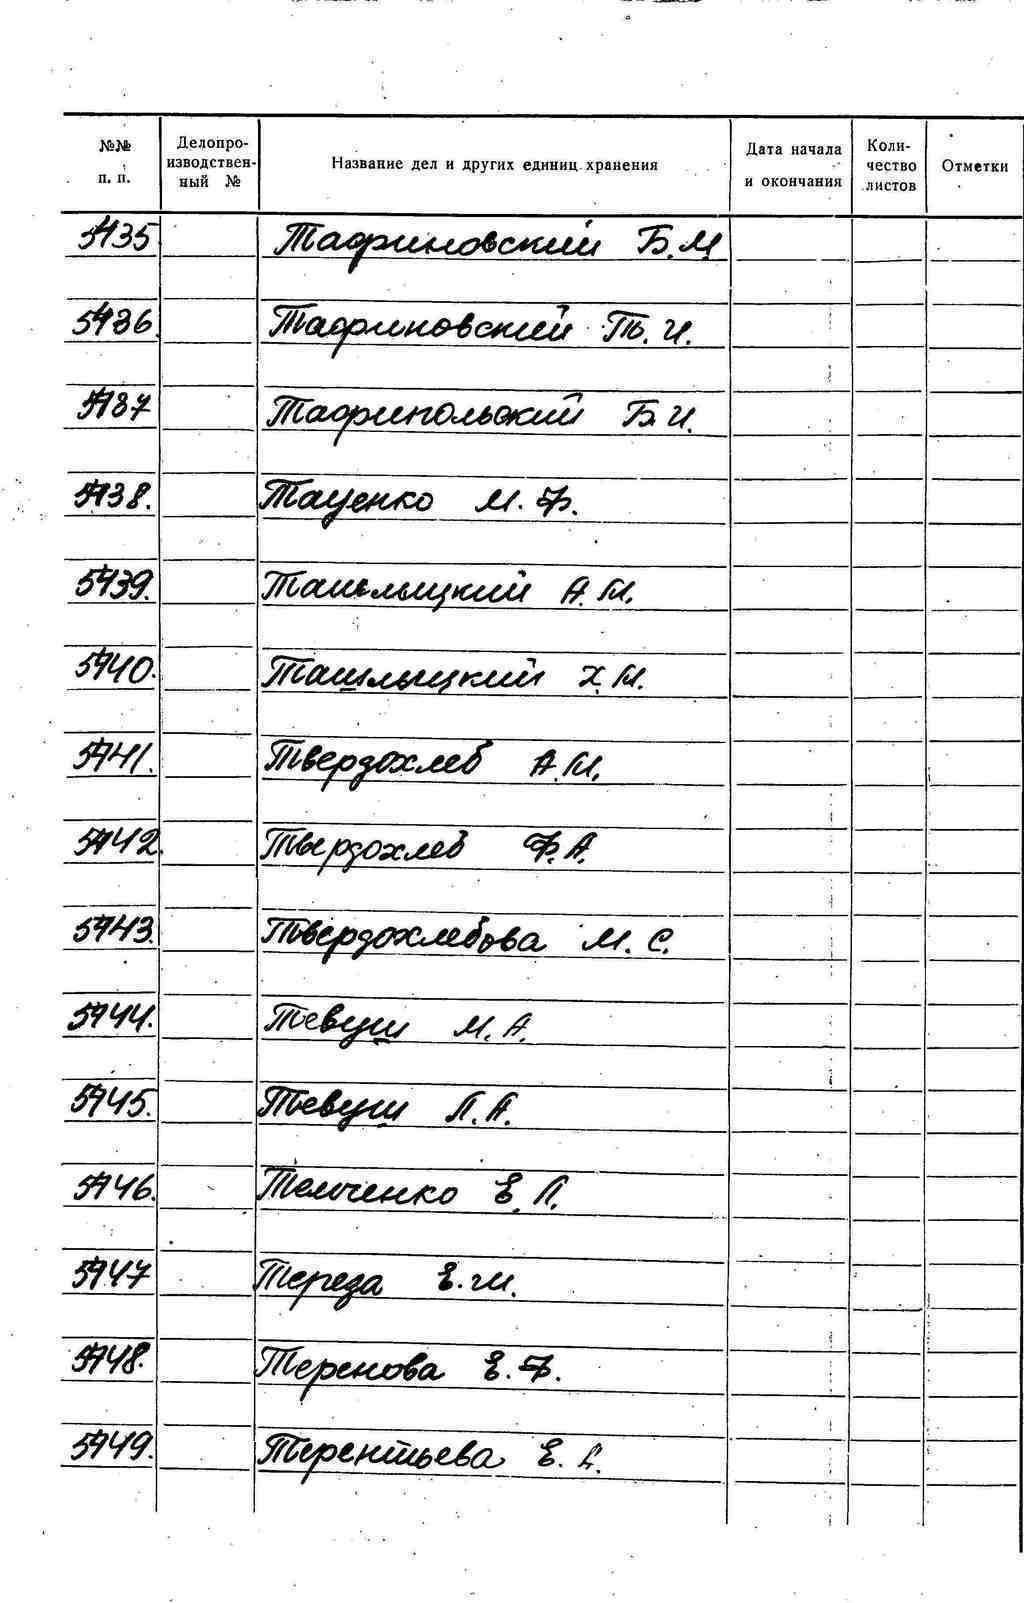 №№ п. п. Делопроизводственный № Название дел и других единиц хранения Дата начала и окончания Количество листов Отметки
5435 Тафриновский Б. М.
5436. Тафриновский И.
5437 Тафрипольский Б. И.
5438. Таценко М. Ф.
5439. Ташлыцкий А. М.
5440. Ташлыцкий Х. М.
5441. Твердохлеб А. М.
5442. Твердохлеб Ф. А.
5443. Твердохлебова М. С.
5444. Тевуш М. А.
5445. Тевуш Л. А.
5446. Темченко Е. Л.
5447 Тереза Е. М.
5448. Теренова Е. Ф.
5449. Терентьева Е.